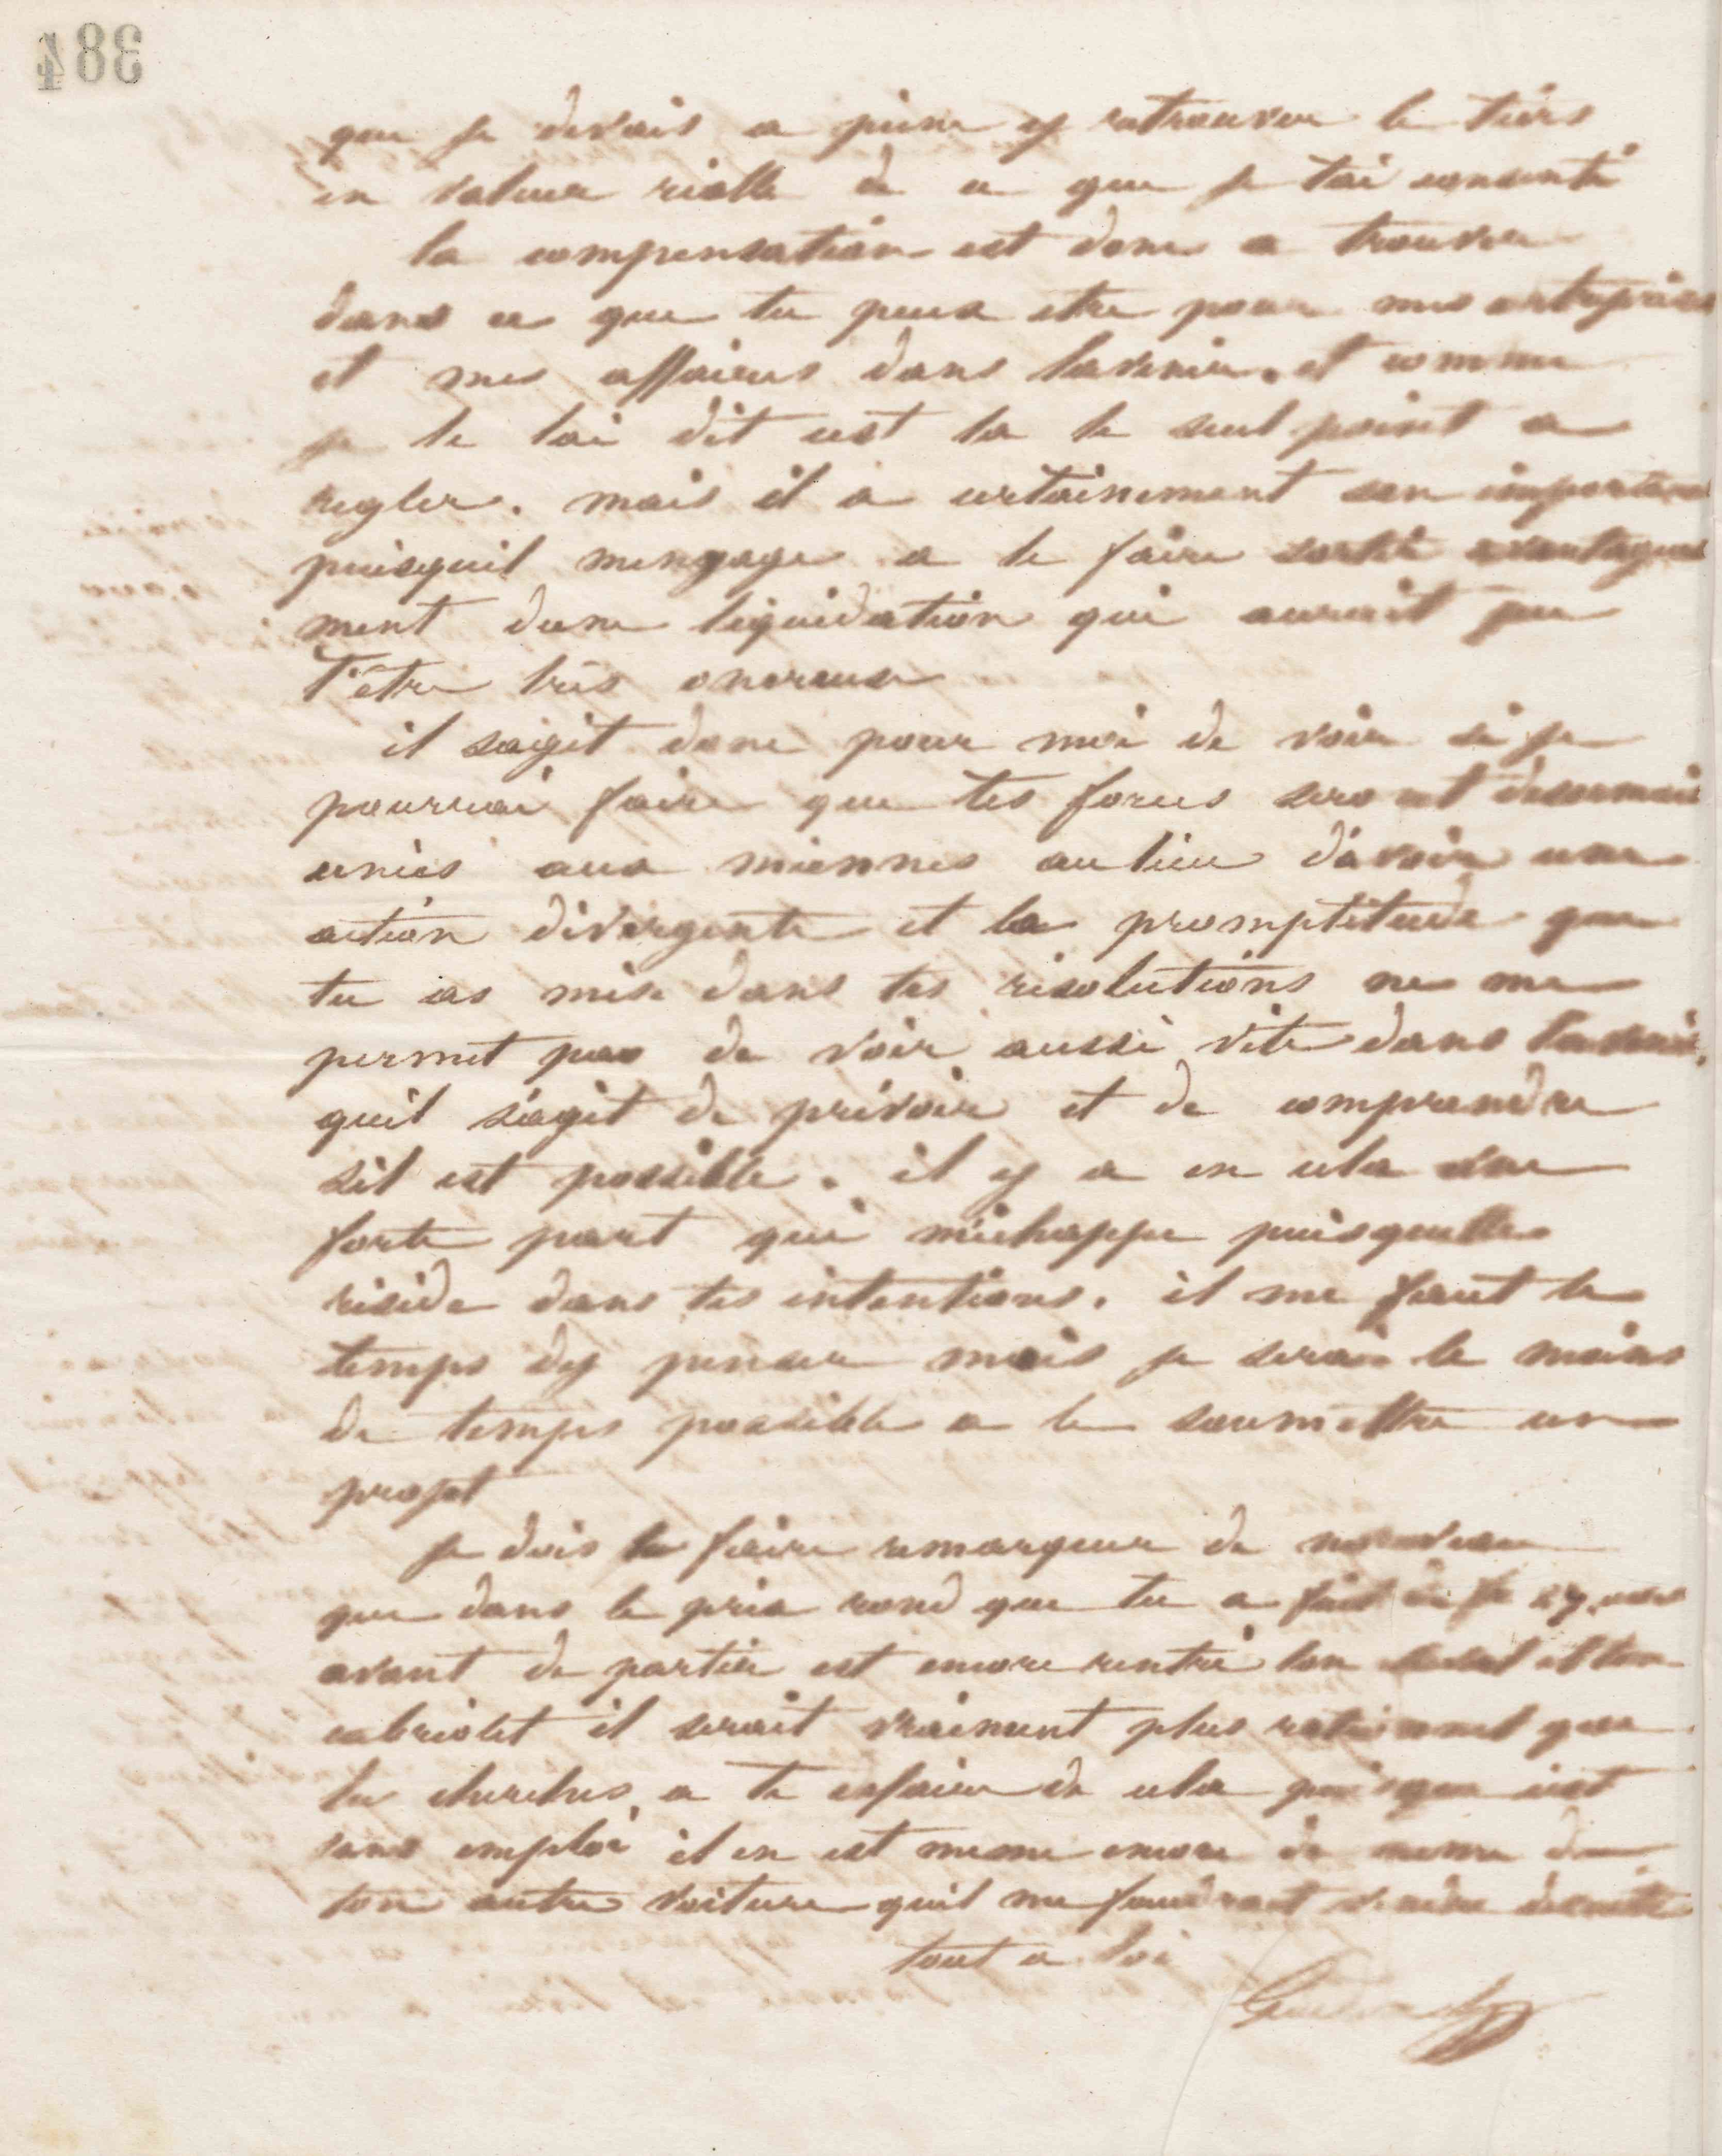 384
que je devais a peine y retrouver le tiers
en valeur reelle de ce que je tai consenti
la compensation est donc a trouver
dans ce que tu peux etre pour mes entreprises
et mes affaires dans lavenir. et comme
je te lai dit cest la le seul point a
regler. mais il a certainement son importance
puisquil mengage a te faire sortir avantageuse
ment dune liquidation qui aurait pu
t'être très onereuse
il sagit donc pour moi de voir si je
pourrai faire que tes forces seront désormais
unies aux miennes au lieu d'avoir une
action divergente et la promptitude que
tu as mise dans tes résolutions ne me
permet pas de voir aussi vite dans lavenir.
quil s'agit de prévoir et de comprendre
sil est possible. il y a en cela une
forte part qui m'échappe puisquelle
réside dans tes intentions. il me faut le
temps dy penser mais je serai le moins
de temps possible a te soumettre un
projet
je dois te faire remarquer de nouveau
que dans le prix rond que tu a fait
avant de partir est encore rentré ton et ton
cabriolet il serait vraiment plus rationnel que
tu cherches a te defaire de cela puisque cest
sans emploi il en est meme encore de meme de
ton autre voiture quil me faudrait vendre
tout a toi